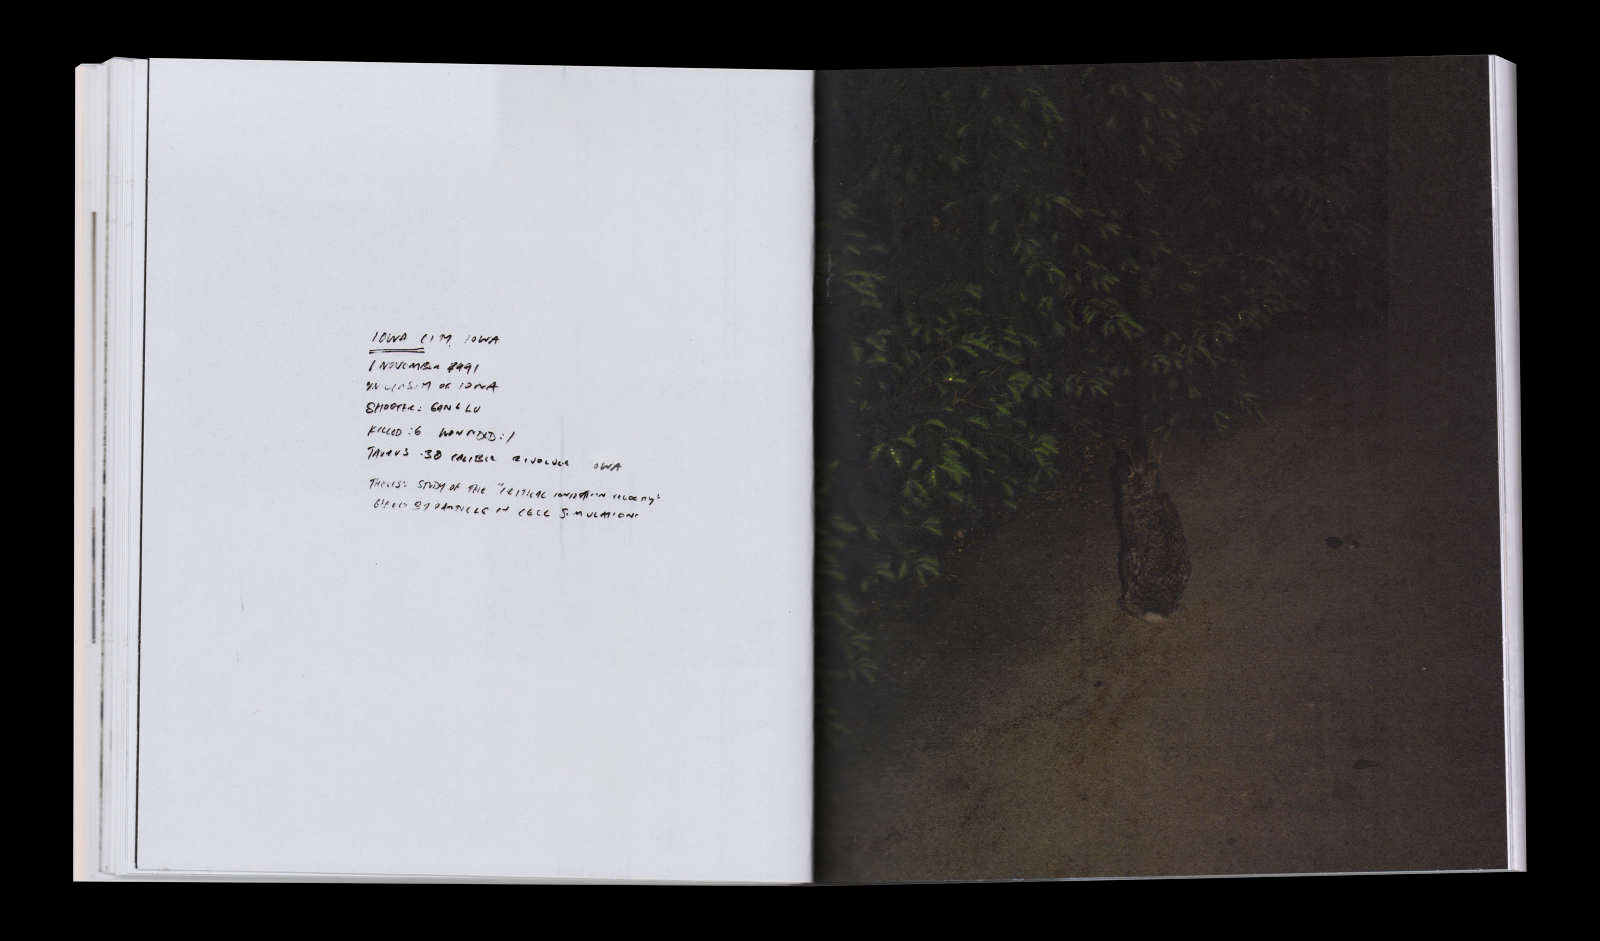 IOWA CITY, IOWA
1 NOVEMBER 1991
UNIVERSITY OF IOWA
SHOOTER: GANG LU
KILLED: 6 WOUNDED: 1
TAURUS .38 CALIBER REVOLVER IOWA
THESIS: STUDY OF THE "CRITICAL IONIZATION VELOCITY"
EFFECT BY PARTICLE IN CELL SIMULATION